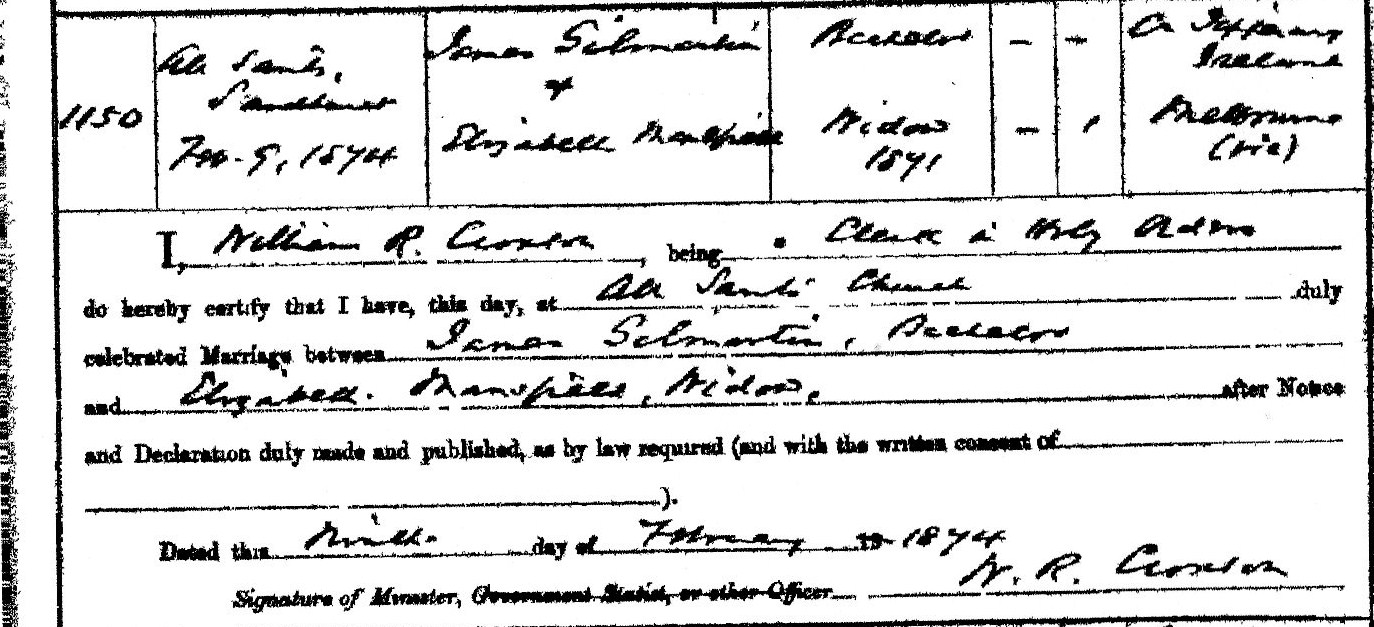 1150
All Saints,
Sandhurst
Feb. 9, 1874
James Gilmartin
&
Elizabeth Mansfield
Bachelor
Widow
1871
- -
- ,
Co Tipperary
Ireland
Melbourne
(Vic)
I, William R. Croxton, being a Clerk in Holy Orders
do hereby certify that I have, this day, at All Saints' Church duly
celebrated Marriage between James Gilmartin, Bachelor
and Elizabeth Mansfield, Widow, after Notice
and Declaration duly made and published, as by law required (and with the written consent of
).
Dated this Ninth day of February 1874
Signature of Minister, Government Statist, or other Officer W. R. Croxton